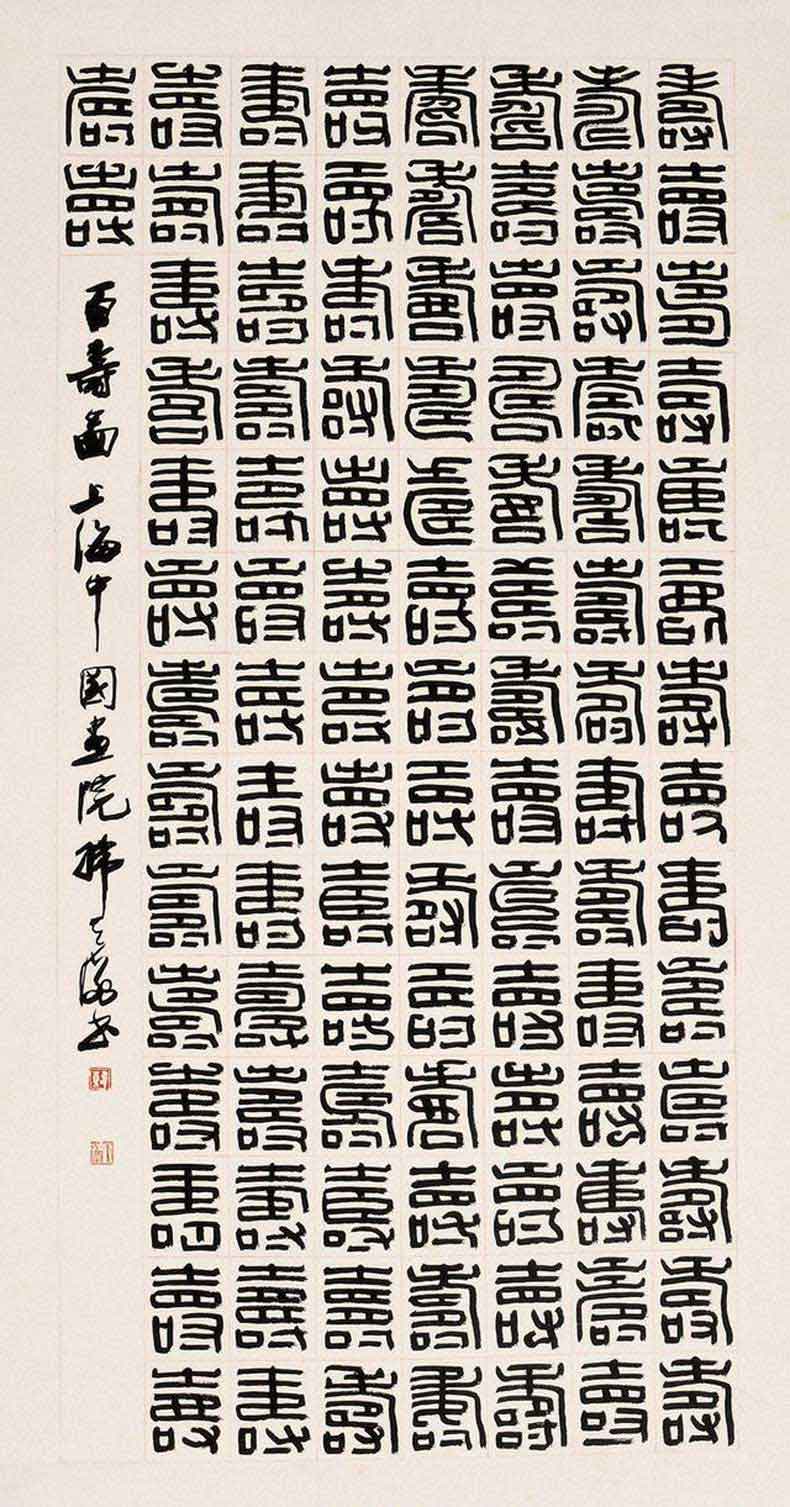 壽壽壽壽壽壽壽壽壽壽壽壽壽壽
壽壽壽壽壽壽壽壽壽壽壽壽壽壽
壽壽壽壽壽壽壽壽壽壽壽壽壽壽
壽壽壽壽壽壽壽壽壽壽壽壽壽壽
壽壽壽壽壽壽壽壽壽壽壽壽壽壽
壽壽壽壽壽壽壽壽壽壽壽壽壽壽
壽壽壽壽壽壽壽壽壽壽壽壽壽壽
壽壽
百壽圖上海中國畫院韓書